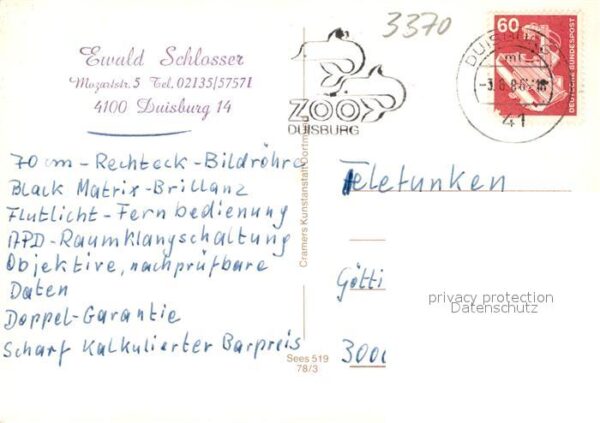 3370
Ewald Schlosser
Mozartstr. 5 Tel. 02135/57571
4100 Duisburg 14
ZOO
DUISBURG
60
DEUTSCHE BUNDESPOST
41
70 cm - Rechteck - Bildröhre
Black Matrix - Brillanz
Flutlicht - Fernbedienung
APD - Raumklangschaltung
Objektive, nachprüfbare
Daten
Doppel-Garantie
Scharf Kalkulierter Barpreis
Cramers Kunstanstalt Dortmund
Sees 519
78/3
Telefunken
Götti
3000
privacy protection
Datenschutz